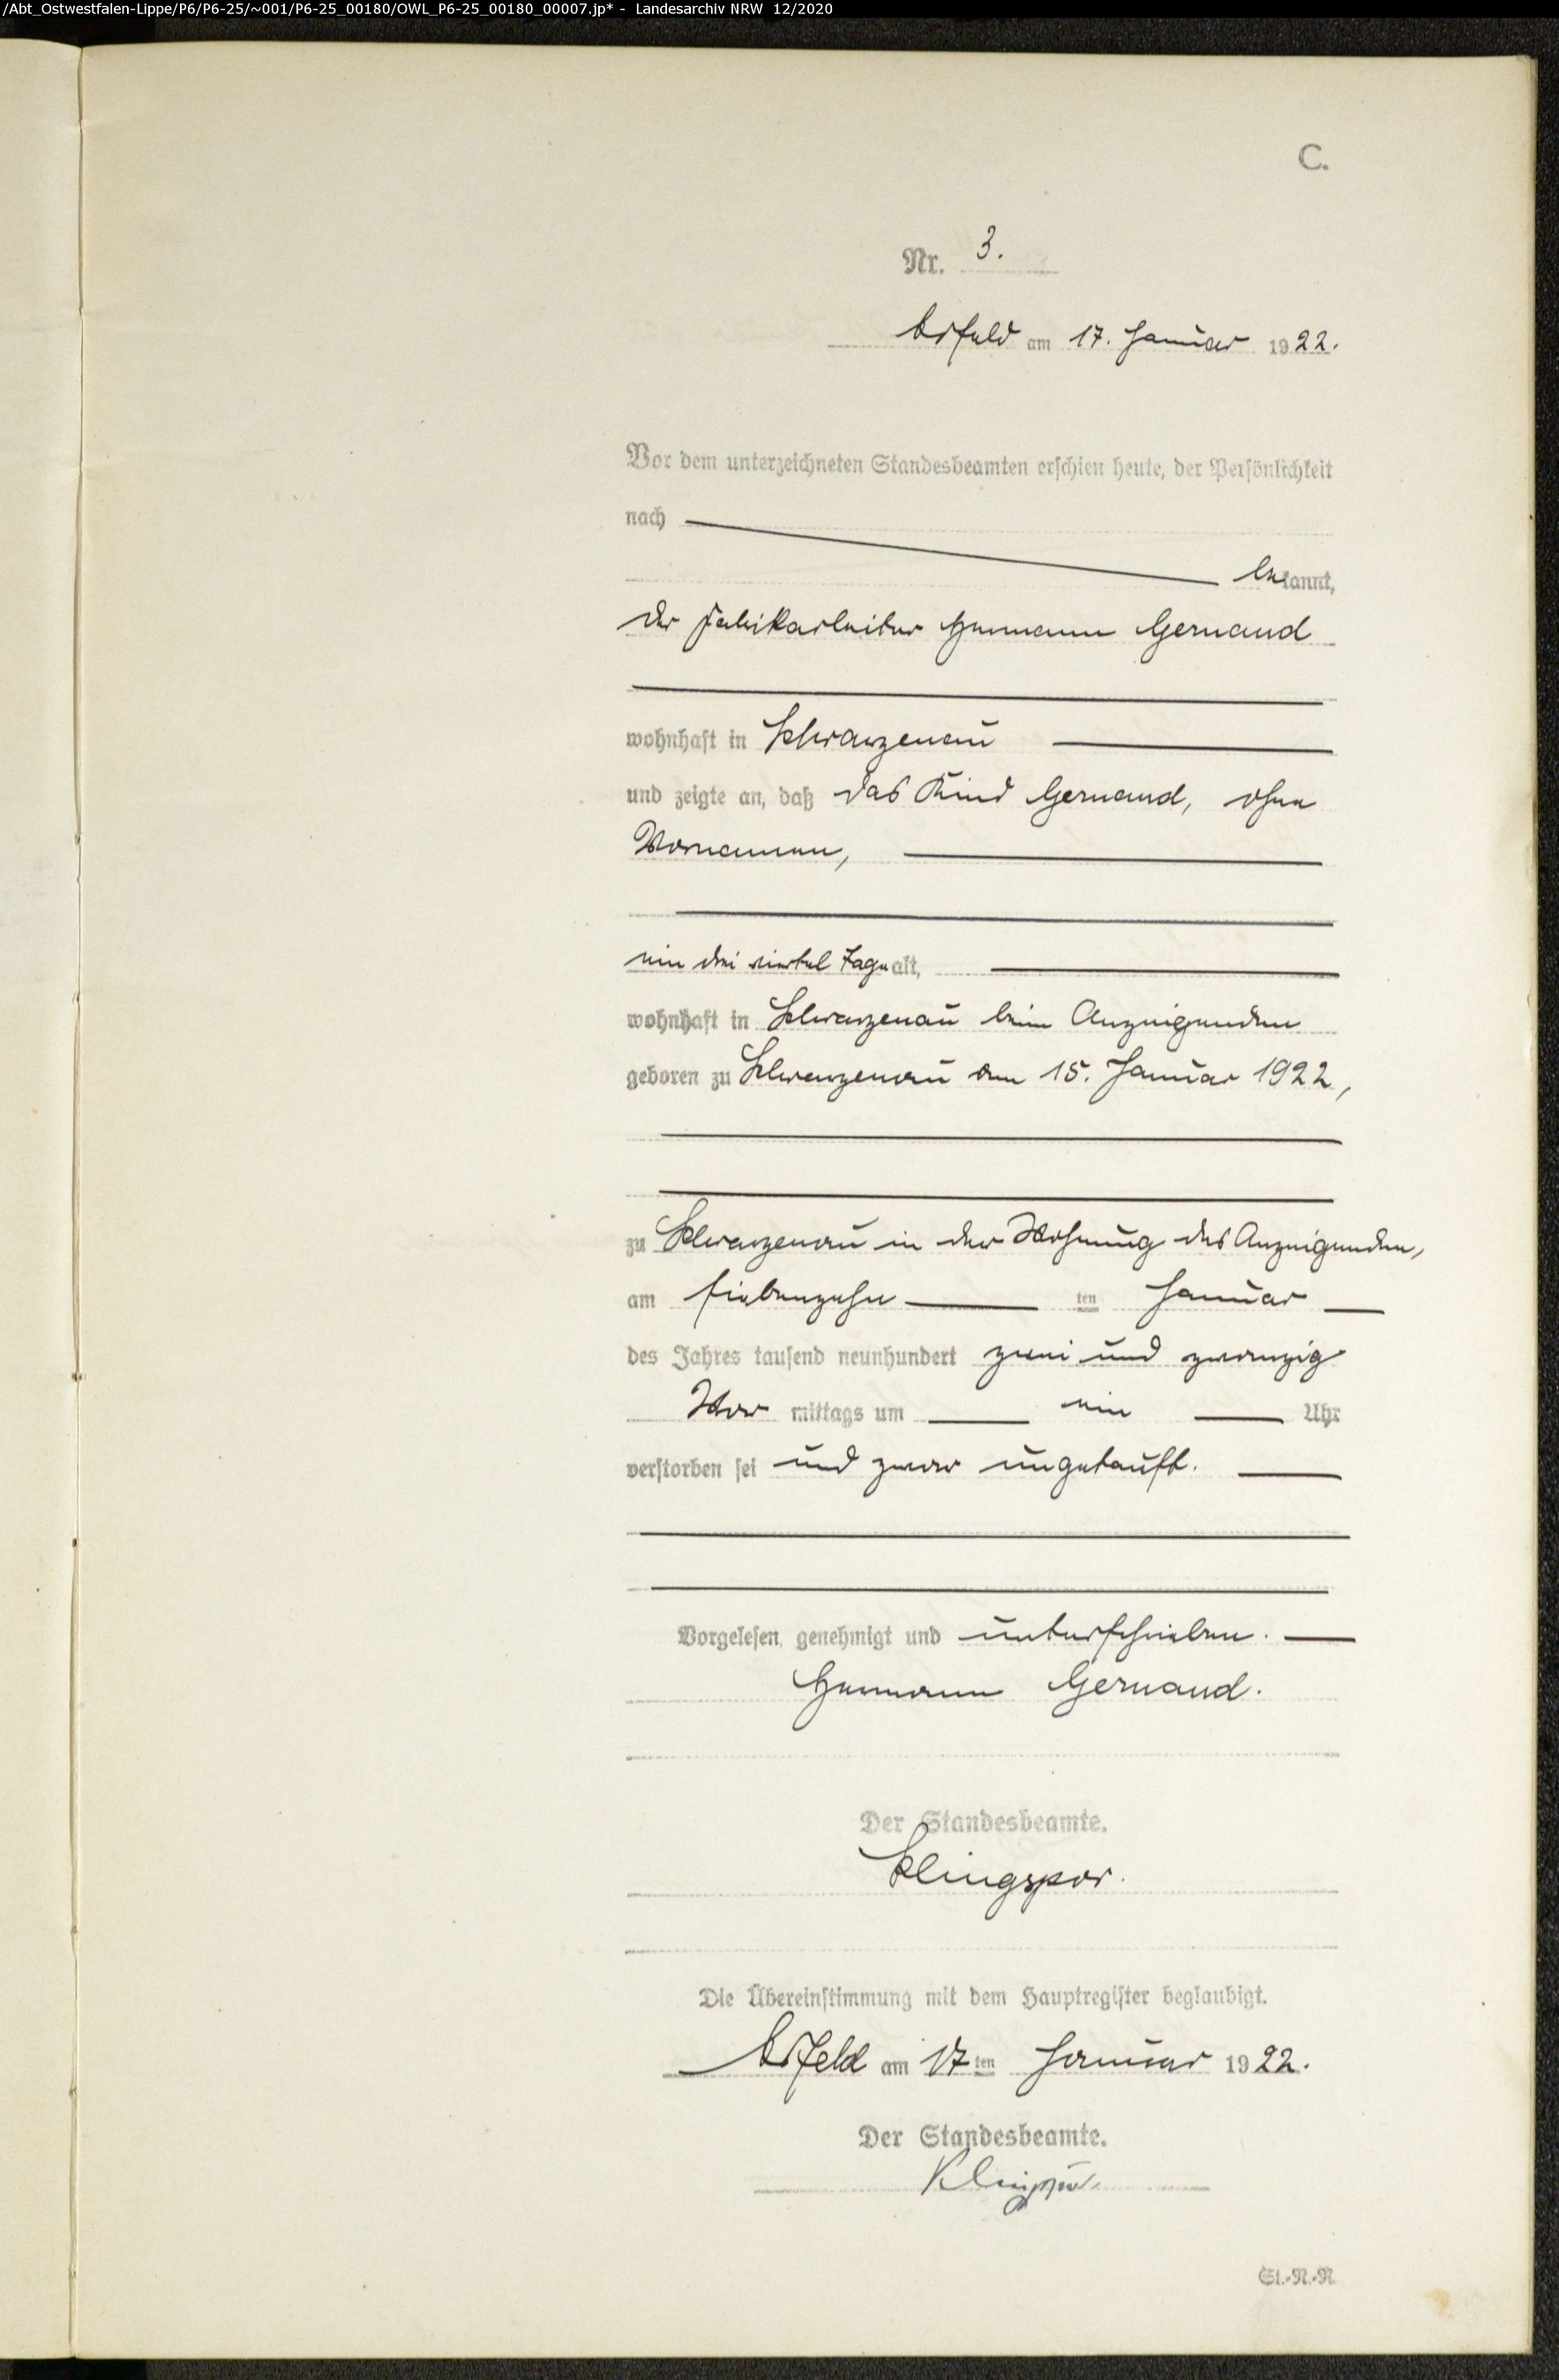 /Abt_Ostwestfalen-Lippe/P6/P6-25/~001/P6-25_00180/OWL_P6-25_00180_00007.jp* - Landesarchiv NRW 12/2020
C.
Nr. 3.
Arfeld am 17. Januar 1922.
Vor dem unterzeichneten Standesbeamten erschien heute, der Persönlichkeit
nach
bekannt,
der Fabrikarbeiter Hermann Gernand
wohnhaft in Schwarzenau
und zeigte an, daß das Kind Gernand, ohne
Vornamen,
ein drei viertel Tage alt,
wohnhaft in Schwarzenau beim Anzeigenden
geboren zu Schwarzenau am 15. Januar 1922,
zu Schwarzenau in der Wohnung des Anzeigenden,
am siebenzehn ten Januar
des Jahres tausend neunhundert zwei und zwanzig
Vor mittags um ein Uhr
verstorben sei und zwar ungetauft.
Vorgelesen, genehmigt und unterschrieben.
Hermann Gernand.
Der Standesbeamte.
Klingspor.
Die Übereinstimmung mit dem Hauptregister beglaubigt.
Arfeld am 17ten Januar 1922.
Der Standesbeamte.
Klingspor.
St.-N.-R.